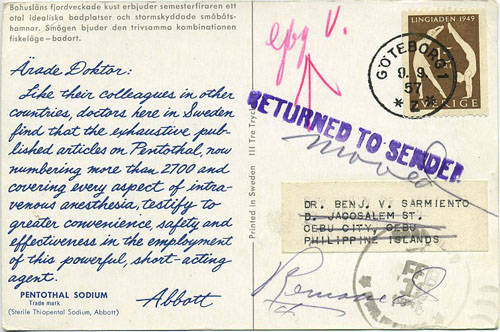 Bohusläns fjordveckade kust erbjuder semesterfiraren ett
otal idealiska badplatser och stormskyddade småbåts-
hamnar. Smögen bjuder den trivsamma kombinationen
fiskeläge – badort.
Ärade Doktor:
Like their colleagues in other
countries, doctors here in Sweden
find that the exhaustive pub-
lished articles on Pentothal, now
numbering more than 2700 and
covering every aspect of intra-
venous anesthesia, testify to
greater convenience, safety and
effectiveness in the employment
of this powerful, short-acting
agent.
PENTOTHAL SODIUM
Trade mark
(Sterile Thiopental Sodium, Abbott)
Abbott
Printed in Sweden III Tre Tryck
LINGIADEN 1949
SVERIGE
GÖTEBORG 1
9. 9.
57
* 2 *
RETURNED TO SENDER
moved
DR. BENJ. V. SARMIENTO
D. JACOSALEM ST.
CEBU CITY, CEBU
PHILIPPINE ISLANDS